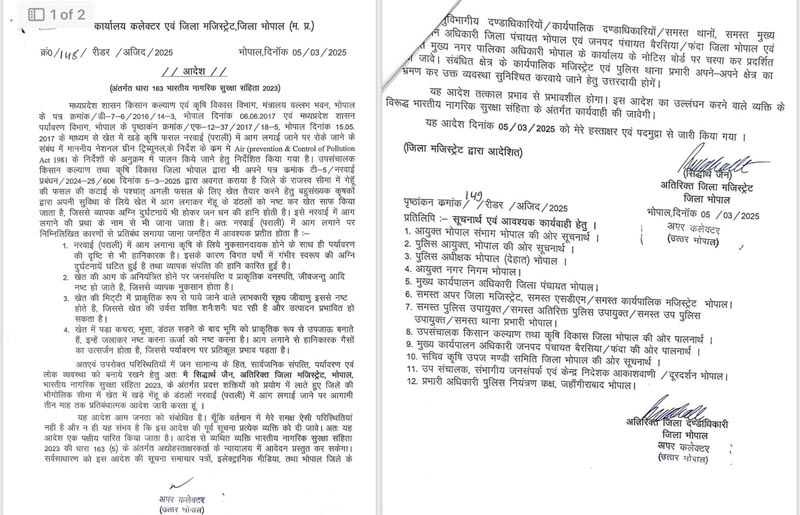 1 of 2
कार्यालय कलेक्टर एवं जिला मजिस्ट्रेट,जिला भोपाल (म. प्र.)
क्रं0/148/ रीडर /अजिद/2025 भोपाल,दिनॉक 05/03/2025
// आदेश //
(अंतर्गत धारा 163 भारतीय नागरिक सुरक्षा संहिता 2023)
मध्यप्रदेश शासन किसान कल्याण एवं कृषि विकास विभाग, मंत्रालय वल्लभ भवन, भोपाल
के पत्र क्रमांक/डी-7-6/2016/14-3, भोपाल दिनांक 06.06.2017 एवं मध्यप्रदेश शासन
पर्यावरण विभाग, भोपाल के पृष्ठाकंन क्रमांक/एफ-12-37/2017/18-5, भोपाल दिनांक 15.05.
2017 के माध्यम से खेत में खड़े कृषि फसल नरवाई (पराली) में आग लगाई जाने पर रोके जाने के
संबंध में माननीय नेशनल ग्रीन ट्रिब्यूनल,के निर्देश के क्रम में Air (prevention & Control of Pollution
Act 1981 के निर्देशों के अनुक्रम में पालन किये जाने हेतु निर्देशित किया गया है। उपसंचालक
किसान कल्याण तथा कृषि विकास जिला भोपाल द्वारा भी अपने पत्र कमांक टी-5/नरवाई
प्रबंधन/2024-25/606 दिनांक 5-3-2025 द्वारा अवगत कराया है जिले के राजस्व सीमा में गेहूँ
की फसल की कटाई के पश्चात् अगली फसल के लिए खेत तैयार करने हेतु बहुसंख्यक कृषकों
द्वारा अपनी सुविधा के लिये खेत में आग लगाकर गेंहू के डंठलों को नष्ट कर खेत साफ किया
जाता है, जिससे व्यापक अग्नि दुर्घटनायें भी होकर जन धन की हानि होती है। इसे नरवाई में आग
लगाने की प्रथा के नाम से भी जाना जाता है। अतः नरवाई (पराली) में आग लगाने पर
निम्निलिखित कारणों से प्रतिबंध लगाया जाना जनहित में आवश्यक प्रतीत होता है :-
1. नरवाई में आग लगाना कृषि के लिए नुकसानदायक होने के साथ ही पर्यावरण
की दृष्टि से भी हानिकारक है। इसके कारण विगत वर्षो में गंभीर स्वरूप की अग्नि
दुर्घटनायें घटित हुई है तथा व्यापक संपत्ति की हानि कारित हुई है।
2. खेत की आग के अनियंत्रित होने पर जनसंपत्ति व प्राकृतिक वनस्पति, जीवजन्तु आदि
नष्ट हो जाते है, जिससे व्यापक नुकसान होता है।
3. खेत की मिट्टी में प्राकृतिक रूप से पाये जाने वाले लाभकारी सूक्ष्म जीवाणु इससे नष्ट
होते है, जिससे खेत की उर्वरा शक्ति शनैःशनैः घट रही है और उत्पादन प्रभावित हो
सकता है।
4. खेत में पड़ा कचरा, भूसा, डंठल सड़ने के बाद भूमि को प्राकृतिक रूप से उपजाऊ बनाते
हैं, इन्हें जलाकर नष्ट करना ऊर्जा को नष्ट करना है। आग लगाने से हानिकारक गैसों
का उत्सर्जन होता है, जिससे पर्यावरण पर प्रतिकूल प्रभाव पड़ता है।
अतएवं उपरोक्त परिस्थितियों में जन सामान्य के हित, सार्वजनिक संपत्ति, पर्यावरण एवं
लोक व्यवस्था को बनाये रखने हेतु अतः मै सिद्धार्थ जैन, अतिरिक्त जिला मजिस्ट्रेट, भोपाल,
भारतीय नागरिक सुरक्षा संहिता 2023, के अंतर्गत प्रदत्त शक्तियों को प्रयोग में लाते हुए जिले की
भौगोलिक सीमा में खेत में खड़े गेंहू के डंठलों नरवाई (पराली) में आग लगाई जाने पर आगामी
तीन माह तक प्रतिबंधात्मक आदेश जारी करता हूं ।
यह आदेश आम जनता को संबोधित है। चूँकि वर्तमान में मेरे समक्ष ऐसी परिस्थितियां
नहीं है और न ही यह संभव है कि इस आदेश की पूर्व सूचना प्रत्येक व्यक्ति को दी जावे। अतः यह
आदेश एक पक्षीय पारित किया जाता है। आदेश से व्यथित व्यक्ति भारतीय नागरिक सुरक्षा संहिता
2023 की धारा 163 (5) के अंतर्गत अद्योहस्ताक्षरकर्ता के न्यायालय में आवेदन प्रस्तुत कर सकेगा।
सर्वसाधारण को इस आदेश की सूचना समाचार पत्रों, इलेक्ट्रानिक मीडिया, तथा भोपाल जिले के
अपर कलेक्टर
(उत्तर भोपाल)
अनुविभागीय दण्डाधिकारियों/कार्यपालिक दण्डाधिकारियों/समस्त थानों, समस्त मुख्य
अधिकारी जिला पंचायत भोपाल एवं जनपद पंचायत बैरसिया/फंदा जिला भोपाल एवं
मुख्य नगर पालिका अधिकारी भोपाल के कार्यालय के नोटिस बोर्ड पर चस्पा कर प्रदर्शित
जावे। संबंधित क्षेत्र के कार्यपालिक मजिस्ट्रेट एवं पुलिस थाना प्रभारी अपने-अपने क्षेत्र का
भ्रमण कर उक्त व्यवस्था सुनिश्चित करवाये जाने हेतु उत्तरदायी होगें।
यह आदेश तत्काल प्रभाव से प्रभावशील होगा। इस आदेश का उल्लंघन करने वाले व्यक्ति के
विरूद्ध भारतीय नागरिक सुरक्षा संहिता के अंतर्गत कार्यवाही की जावेगी।
यह आदेश दिनांक 05/03/2025 को मेरे हस्ताक्षर एवं पदमुद्रा से जारी किया गया ।
(जिला मजिस्ट्रेट द्वारा आदेशित)
(सिद्धार्थ जैन)
अतिरिक्त जिला मजिस्ट्रेट
जिला भोपाल
पृष्ठांकन कमांक/149/रीडर/अजिद/2025 भोपाल,दिनांक 05 /03/2025
अपर कलेक्टर
(उत्तर भोपाल)
प्रतिलिपि :- सूचनार्थ एवं आवश्यक कार्यवाही हेतु ।
1. आयुक्त भोपाल संभाग भोपाल की ओर सूचनार्थ ।
2. पुलिस आयुक्त, भोपाल की ओर सूचनार्थ ।
3. पुलिस अधीक्षक भोपाल (देहात) भोपाल ।
4. आयुक्त नगर निगम भोपाल।
5. मुख्य कार्यपालन अधिकारी जिला पंचायत भोपाल।
6. समस्त अपर जिला मजिस्ट्रेट, समस्त एसडीएम/समस्त कार्यपालिक मजिस्ट्रेट भोपाल।
7. समस्त पुलिस उपायुक्त/समस्त अतिरिक्त पुलिस उपायुक्त/समस्त उप पुलिस
उपायुक्त/समस्त थाना प्रभारी भोपाल।
8. उपसंचालक किसान कल्याण तथा कृषि विकास जिला भोपाल की ओर पालनार्थ ।
9. मुख्य कार्यपालन अधिकारी जनपद पंचायत बैरसिया/फंदा की ओर पालनार्थ ।
10. सचिव कृषि उपज मण्डी समिति जिला भोपाल की ओर सूचनार्थ ।
11. उप संचालक, संभागीय जनसंपर्क एवं केन्द्र निदेशक आकाशवाणी /दूरदर्शन भोपाल।
12. प्रभारी अधिकारी पुलिस नियंत्रण कक्ष, जहॉंगीराबाद भोपाल।
अतिरिक्त जिला दण्डाधिकारी
जिला भोपाल
अपर कलेक्टर
(उत्तर भोपाल)